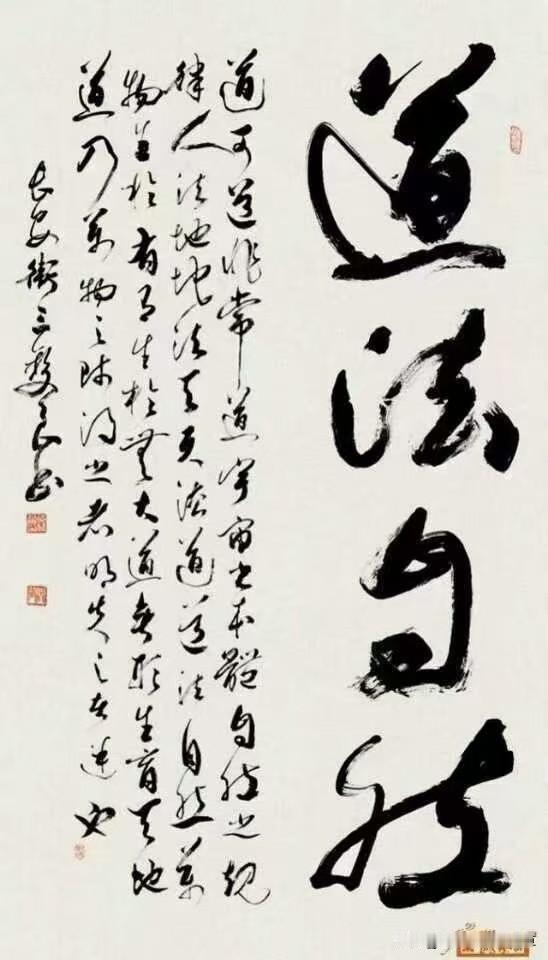 道法自然
道可道非常道宇宙之本體自然之規
律人法地地法天天法道道法自然萬
物生於有有生於無大道無形生育天地
道乃萬物之師得之者明失之者迷也
長安街三致良書